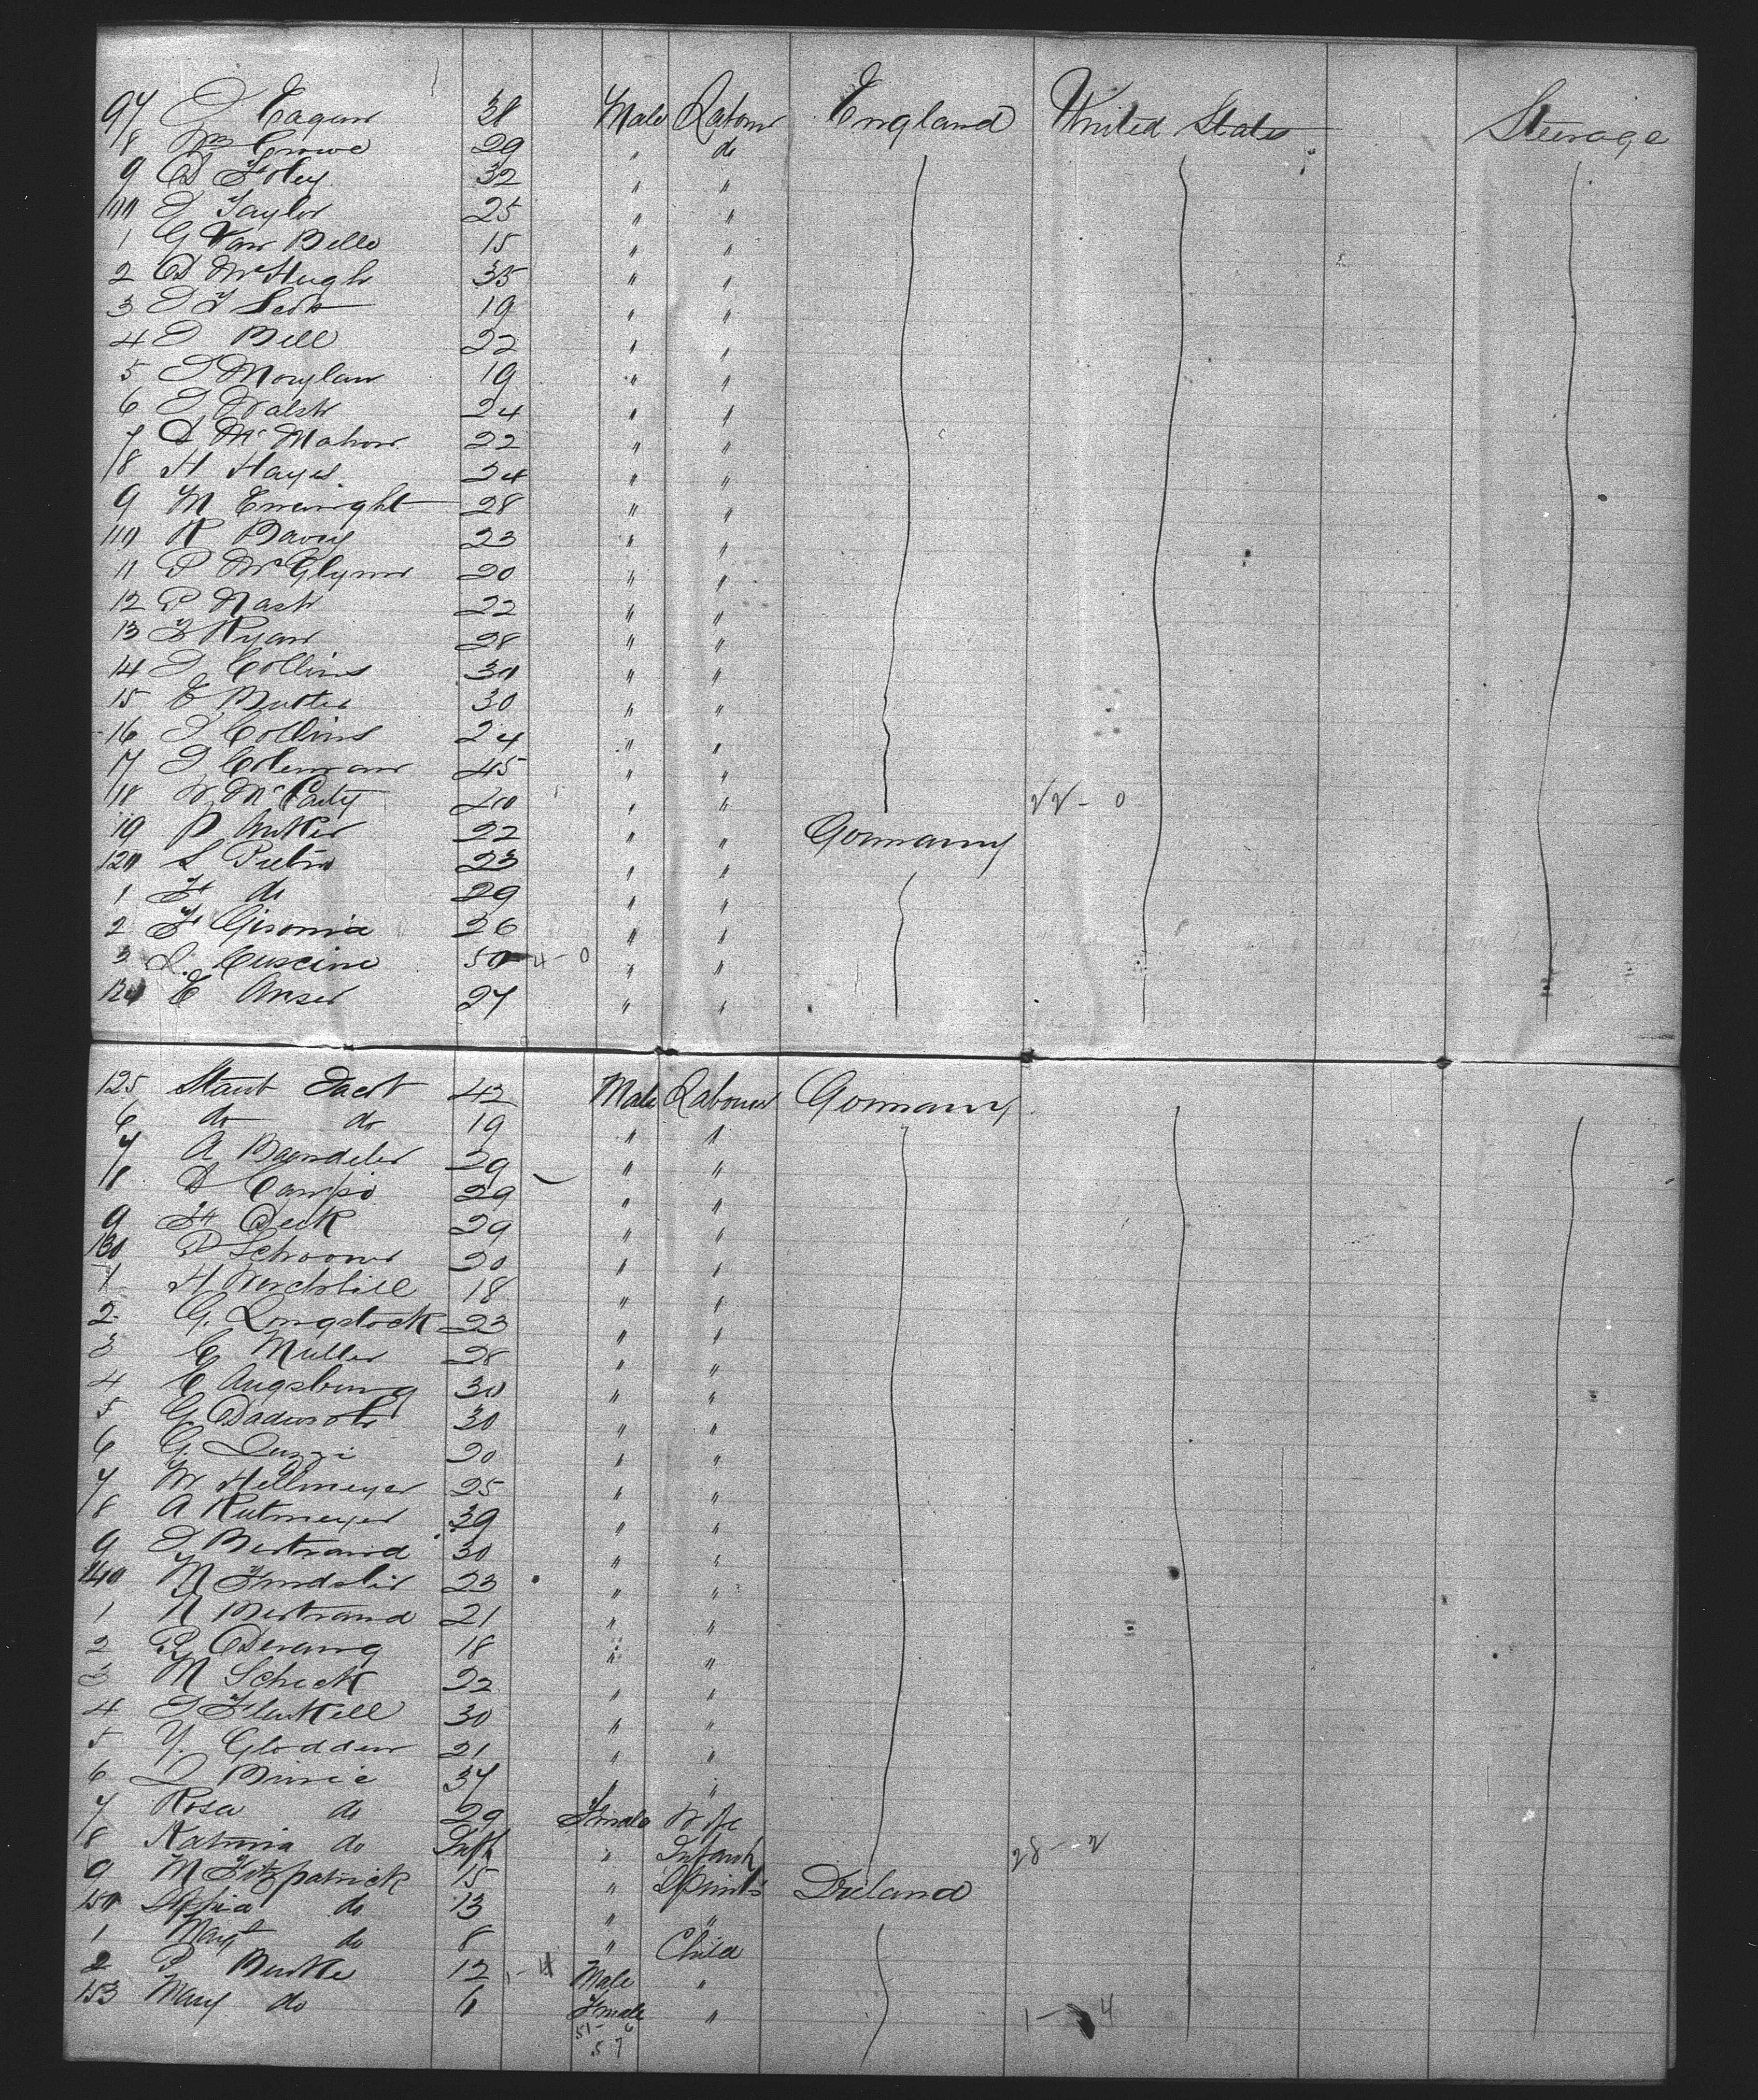 97 J Eagan 38 Male Labour England United States Steerage
8 Wm Crowe 29 " do
9 D Foley 32 " "
100 J Taylor 25 " "
1 G Van Belle 15 " "
2 D McHugh 35 " "
3 J F 19 " "
4 J Bell 22 " "
5 J Moylan 19 " "
6 J Walsh 24 " "
7 D McMahon 22 " "
8 H Hayes. 24 " "
9 M Enwright 28 " "
110 R Davey 23 " "
11 P McGlynn 20 " "
12 P Nash 22 " "
13 F Ryan 28 " "
14 J Collins 30 " "
15 E Butler 30 " "
16 J Collins 24 " "
17 J Coleman 45 " "
18 W McCarty 40 " " 22 - 0
19 P 22 " " Germany
120 L Pietro 23 " "
1 F do 29 " "
2 F Gisonia 26 " "
3 L. Cuscino 50 4 - 0 " "
124 E Anser 27 " "
125 Staub Jacob 42 Male Labourer Germany
6 do do 19 " "
7 A 29 " "
8 D Campo 29 " "
9 F Deck 29 " "
130 P Schoone 20 " "
1 H 18 " "
2 G. Longstock 23 " "
3 C Muller 28 " "
4 E Augsburg 30 " "
5 G 30 " "
6 G. Luzzi 20 " "
7 W Hellmeyer 25 " "
8 A Rutmeyer 39 " "
9 J Bertrand 30 " "
140 M 23 " "
1 N Bertrand 21 " "
2 R 18 " "
3 M Scheck 22 " "
4 J 30 " "
5 Y. Glodden 21 " "
6 37 " "
7 Rosa do 29 Female Wife
8 do Inft " Infant 28 - 2
9 M Fitzpatrick 15 " Ireland
150 do 13 " "
1 Margt do 8 " Child
2 P Burke 12 1 - 4 Male "
153 Mary do 6 Female " 1 - 4
51 - 6
57